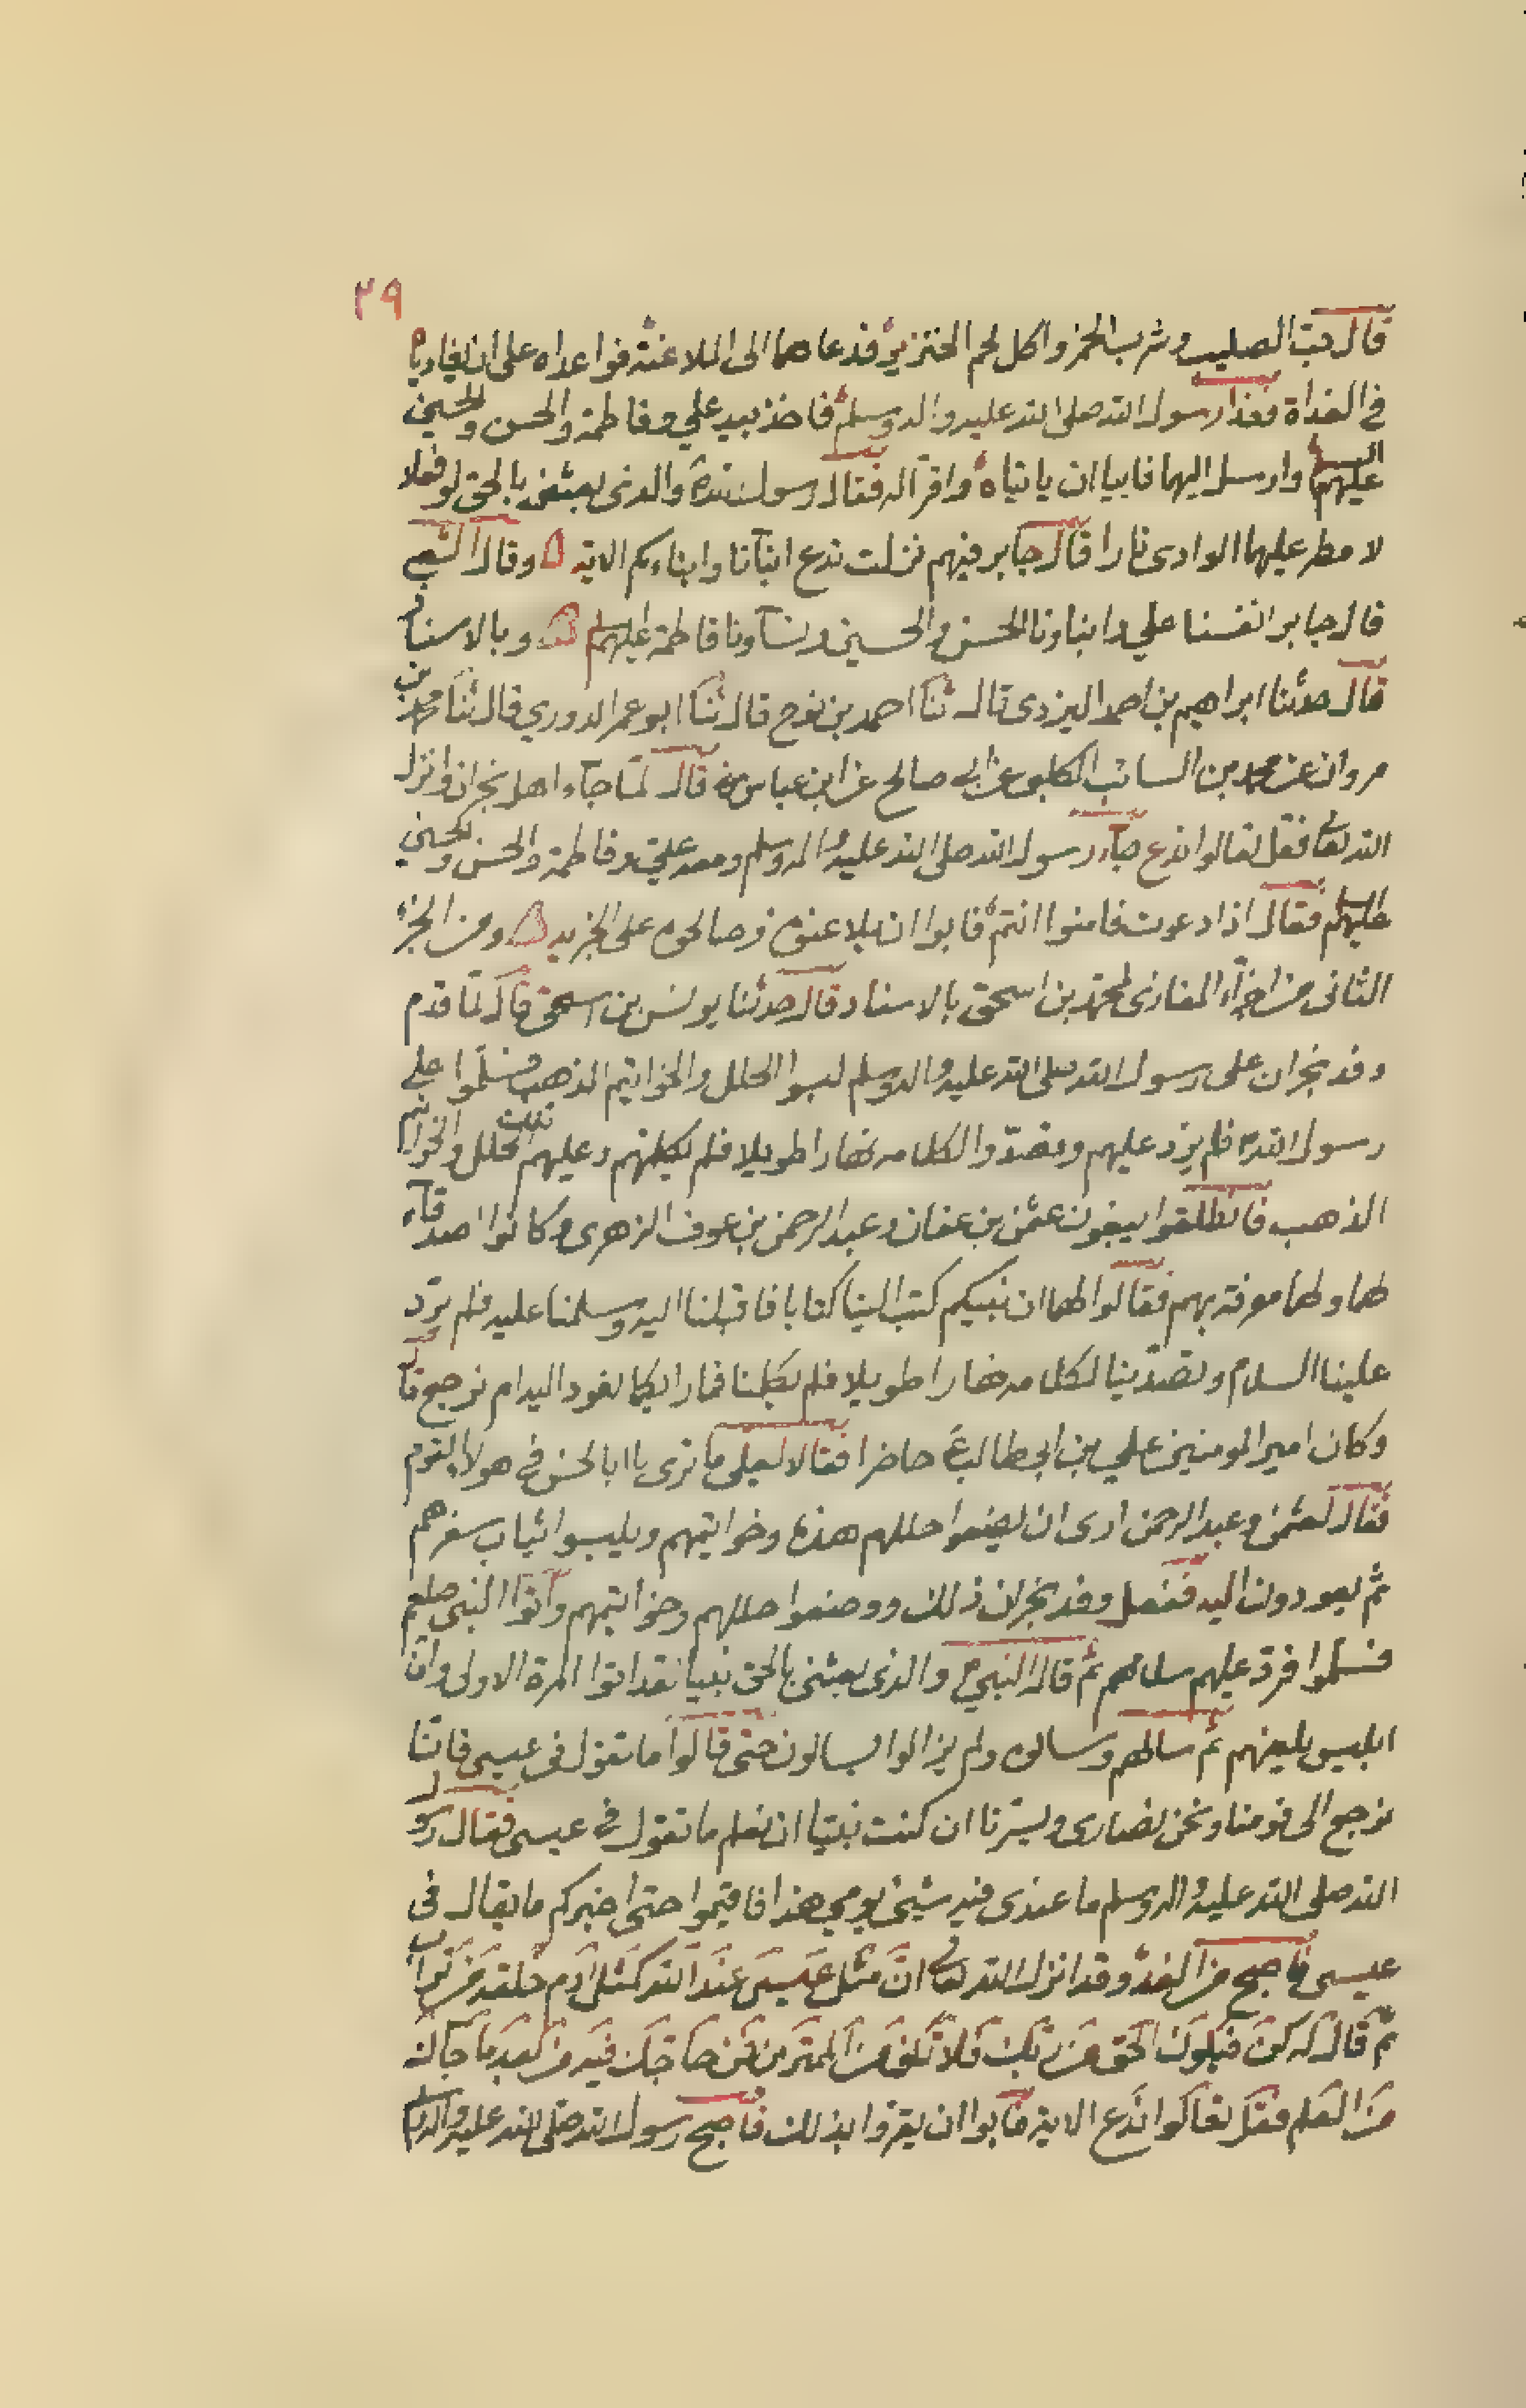 ٢٩
قال حب الصليب وشرب الخمر واكل لحم الخنزير فدعاهما الى الملاعنة فواعداه على ان يغادياه
في الغداة فغدا رسول الله صلى الله عليه واله وسلم فاخذ بيد علي وفاطمة والحسن والحسين
عليهم السلم وارسل اليهما فابيا ان ياتياه واقرا له فقال رسول الله والذي بعثني بالحق لو فعلا
لامطر عليهما الوادى نارا قال جابر فيهم نزلت ندع ابنآنا وابناءكم الاية ه وقال الشعبي
قال جابر انفسنا علي وابناونا الحسن والحسين ونسآونا فاطمة عليهم السلم ه وبالاسناد
قال حدثنا ابراهيم بن احمد اليزدى قال ثنا احمد بن نوح قال ثنا ابو عمر الدوري قال ثنا محمد بن
مروان عن محمد بن السائب الكلبي عن ابي صالح عن ابن عباس رض قال لما جآء اهل نجران وانزل
الله تعالى فقل تعالوا ندع جآء رسول الله صلى الله عليه واله وسلم ومعه علي وفاطمة والحسن والحسين
عليهم السلم فقال اذا دعوت فامنوا انتم فابوا ان يلاعنوه وصالحوه على الجزية ه ومن الجزء
الثانى من اجزآء المغازى لمحمد بن اسحق بالاسناد قال حدثنا يونس بن اسحق قال لما قدم
وفد نجران على رسول الله صلى الله عليه واله وسلم لبسوا الحلل والخواتيم الذهب وسلموا على
رسول الله فلم يرد عليهم وتصدوا لكلامه نهارا طويلا فلم يكلمهم وعليهم تلك الحلل والخواتيم
الذهب فانطلقوا يبغون عثمن بن عفان وعبد الرحمن بن عوف الزهرى وكانوا اصدقآء
لهما ولهما معرفة بهم فقالوا لهما ان نبيكم كتب الينا كتابا فاقبلنا اليه وسلمنا عليه فلم يرد
علينا السلام وتصدينا لكلامه نهارا طويلا فلم يكلمنا فما رايكما نعود اليه ام نرجع قال
وكان امير المومنين علي بن ابي طالب ع حاضرا فقالا لعلى ما ترى يا ابا الحسن في هولاء القوم
فقال لعثمن وعبد الرحمن ارى ان يضعوا حللهم هذه وخواتيمهم ويلبسوا ثياب سفرهم
ثم يعودون اليه ففعل وفد نجران ذلك ووضعوا حللهم وخواتيمهم واتوا النبى صلعم
فسلموا فرد عليهم سلامهم ثم قال النبي والذى بعثنى بالحق نبيا لقد اتوا المرة الاولى وان
ابليس يلعنهم ثم سالهم وسالوه ولم يزالوا يسالون حتى قالوا ما تقول فى عيسى فاننا
نرجع الى قومنا ونحن نصارى ويسرنا ان كنت نبيا ان نعلم ما تقول في عيسى فقال رسول
الله صلى الله عليه واله وسلم ما عندى فيه شيئ يومي هذا فاقيموا حتى اخبركم ما يقال فى
عيسى فاصبح من الغد وقد انزل الله تعالى ان مثل عيسى عند الله كمثل ادم خلقه من تراب
ثم قال له كن فيكون الحق من ربك فلا تكن من الممترين فمن حاجك فيه من بعد ما جآك
من العلم فقل تعالوا ندع الاية فابوا ان يقروا بذلك فاصبح رسول الله صلى الله عليه واله وسلم